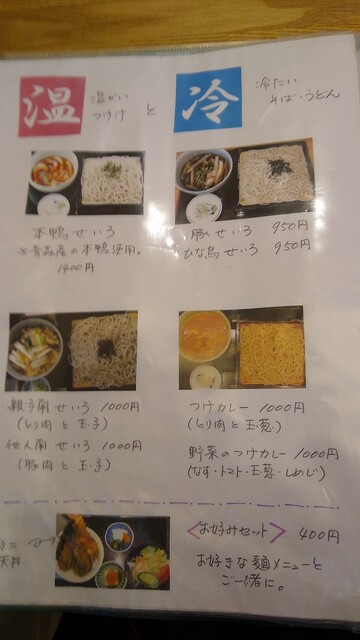 温
温かい
つけ汁
と
冷
冷たい
そば・うどん
本鴨せいろ
※青森産の本鴨使用。
1400円
豚せいろ 950円
ひな鳥せいろ 950円
親子南せいろ 1000円
(とり肉と玉子)
他人南せいろ 1000円
(豚肉と玉子)
つけカレー 1000円
(とり肉と玉葱)
野菜のつけカレー 1000円
(なす・トマト・玉葱・しめじ)
ミニ
天丼
〈お好みセット〉 400円
お好きな麺メニューと
ご一緒に。